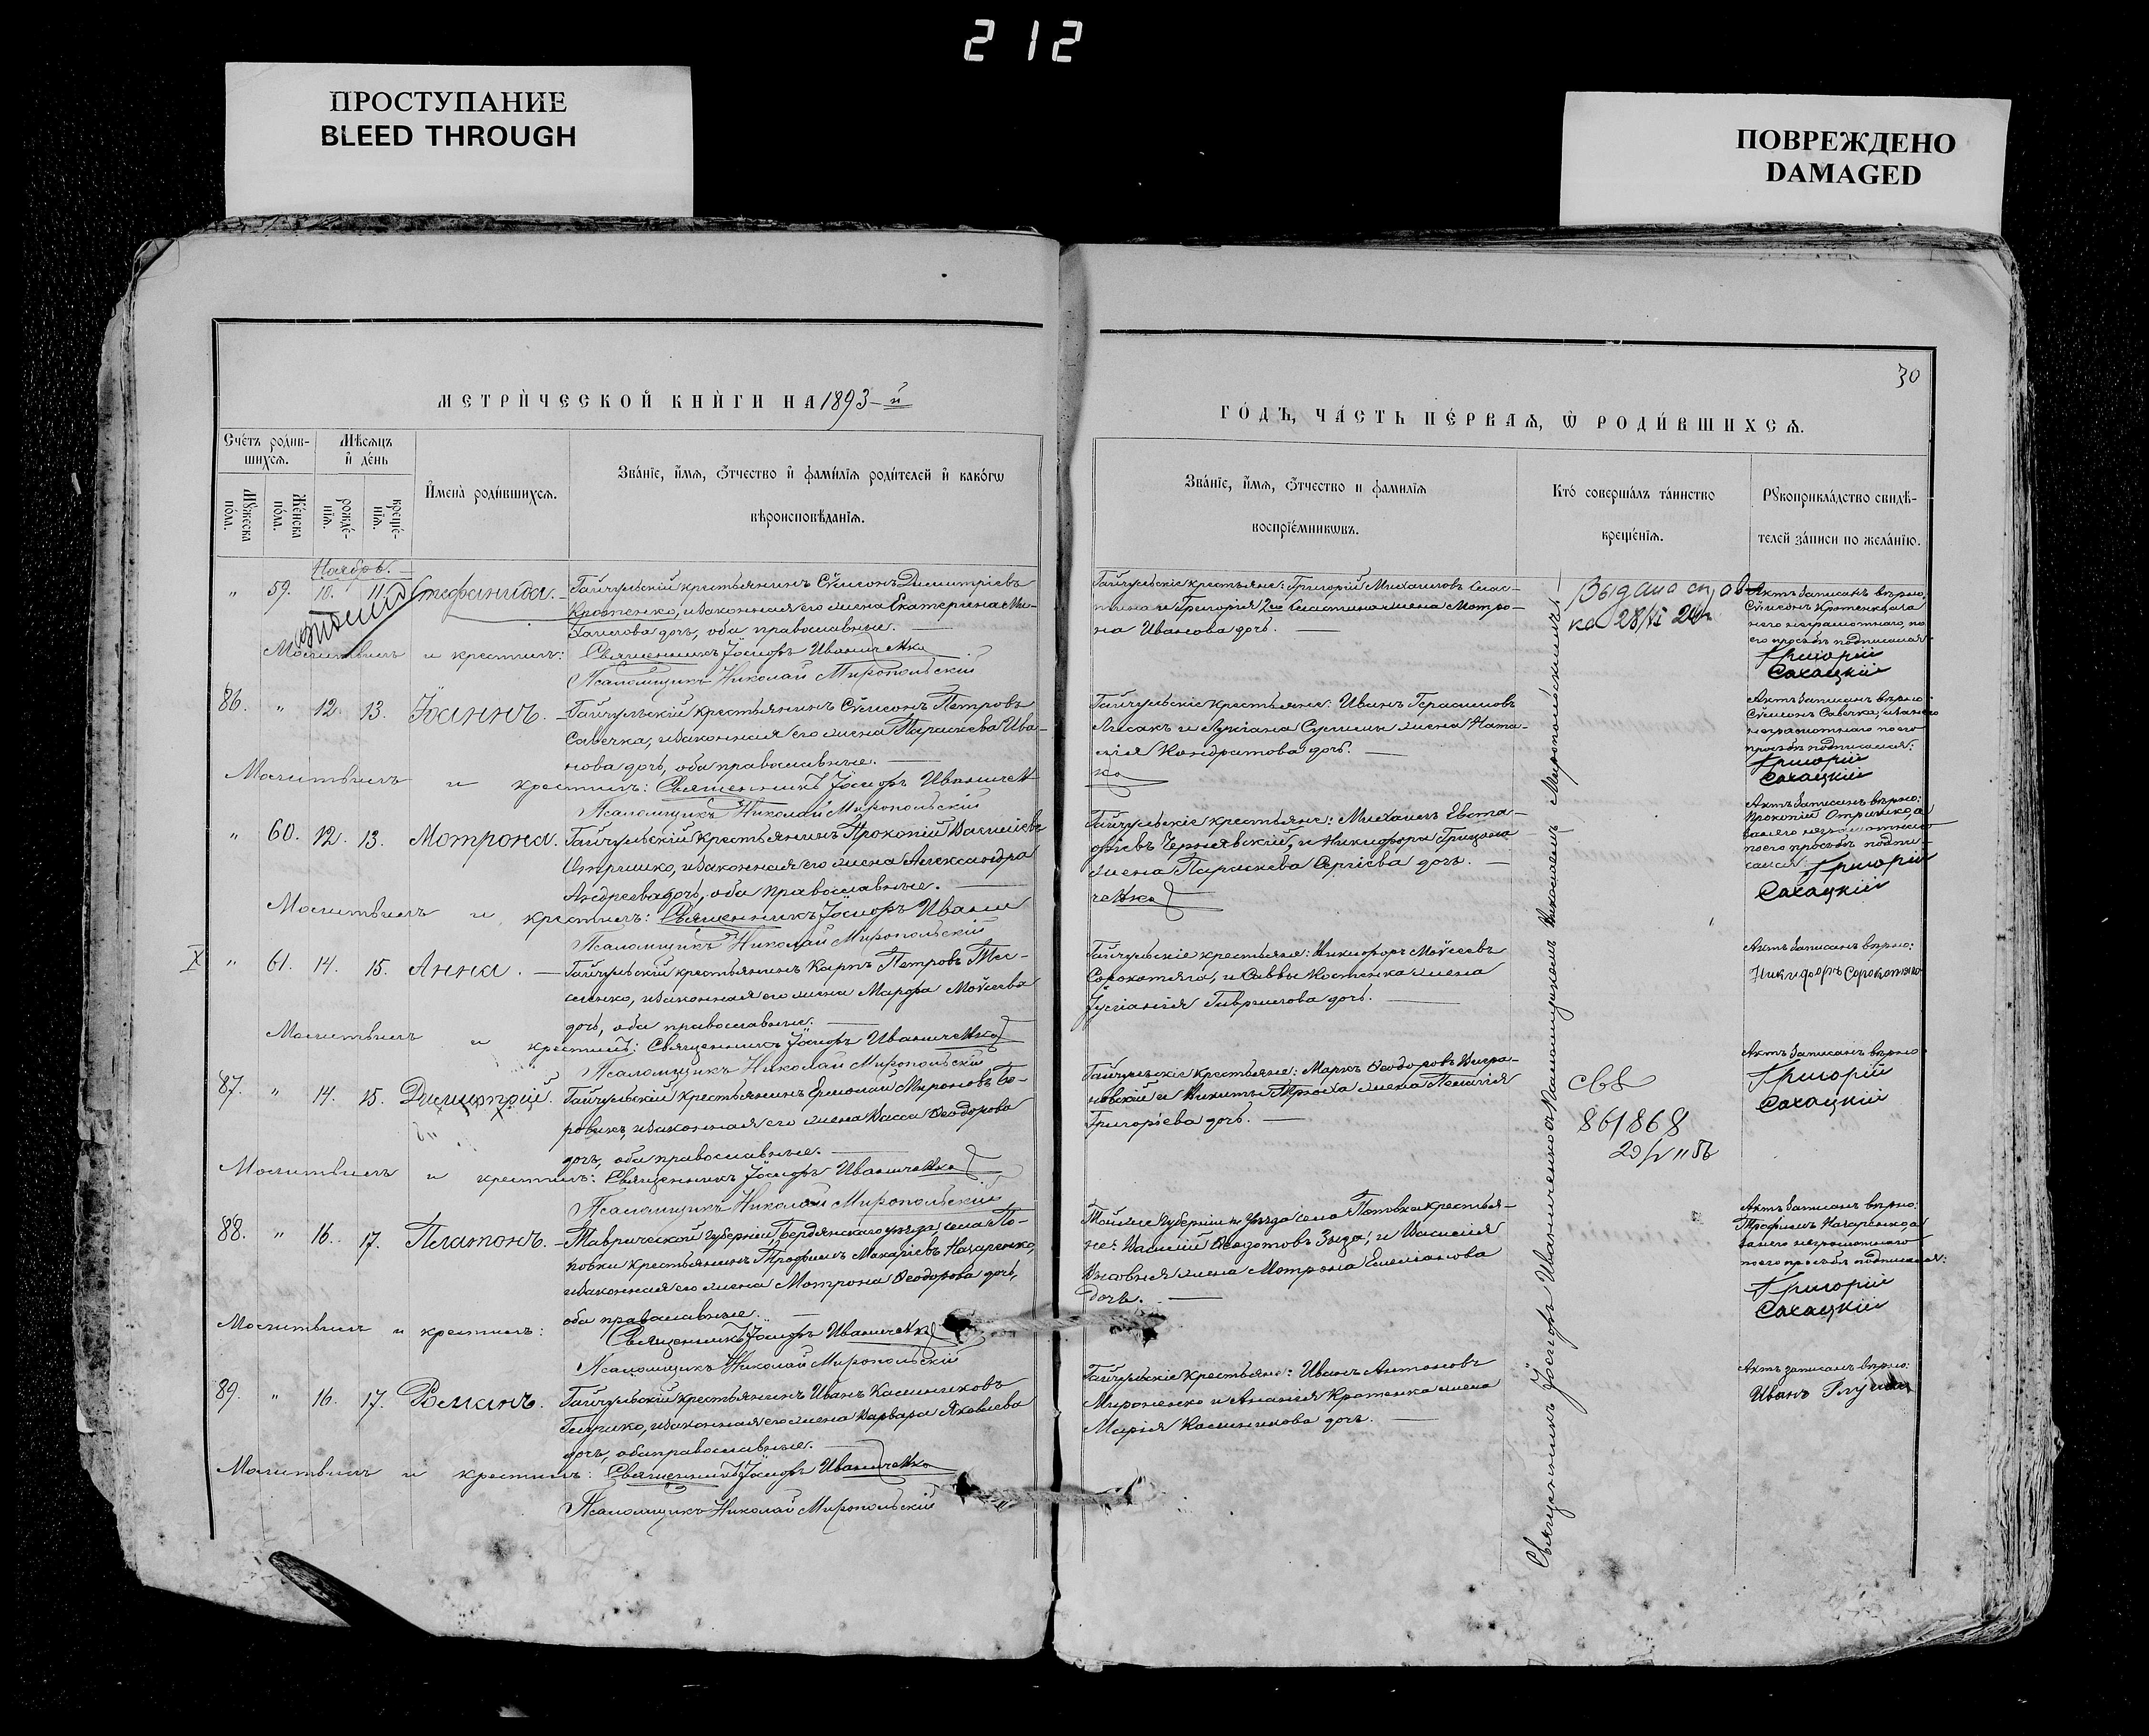 212
ПРОСТУПАНИЕ
BLEED THROUGH
ПОВРЕЖДЕНО
DAMAGED
30
МЕТРИ́ЧЕСКОЙ КНИ́ГИ НА 1893-й
ГО́ДЪ, ЧА́СТЬ ПЕ́РВАѦ, Ѡ РОДИ́ВШИХСѦ.
Сче́тъ родив-
шихсѧ.
Мѣсѧцъ
и҆ де́нь
Мꙋжеска пола.
Же́нска по́ла.
рожде́-
нїѧ.
креще́-
нїѧ.
И҆мена̀ роди́вшихсѧ.
Зва́нїе, и҆́мѧ, ѻ҆́тчество и҆ фами́лїѧ роди́телей и҆ како́гѡ
вѣроисповѣ́данїѧ.
Зва́нїе, и҆́мѧ, ѻ҆́тчество и фамилїѧ
воспрїе́мникѡвъ.
Кто̀ соверша́лъ та́инство
креще́нїѧ.
Рꙋкоприкла́дство свидѣ́-
телей за́писи по жела́нїю.
Ноябрь.
" 59. 10. 11. Стефанида. Гайчульскій крестьянинъ Сѷмеонъ Димитріевъ
Кротенко, и законная его жена Екатерина Ми-
хаилова дочь, оба православные.
Молитвилъ и крестилъ: Священникъ Іосифъ Иваниченко
Псаломщикъ Николай Миропольскій
Гайчульскіе крестьяне: Григорій Михаиловъ Слас-
тина и Григорія 2го Сластина жена Мотро-
на Иванова дочь.
Выдана справ-
ка 28/VI 24
Актъ записанъ вѣрно,
Сѷмеонъ Кротенко, а за
него неграмотнаго, по
его просьбѣ подписался
Григорій
Сахацкій
86. " 12. 13. Іоаннъ. Гайчульскій крестьянинъ Сѷмеонъ Петровъ
Савечка, и законная его жена Параскева Ива-
нова дочь, оба православные.
Молитвилъ и крестилъ: Священникъ Іосифъ Иваничен
ко
Псаломщикъ Николай Миропольскій
Гайчульскіе крестьяне: Иванъ Герасимовъ
Лисакъ и Лукіана Сушили жена Ната-
лія Кондратова дочь.
Актъ записанъ вѣрно:
Сѷмеонъ Савечка, и за него
неграмотнаго по его
просьбѣ подписался:
Григорій
Сахацкій
" 60. 12. 13. Мотрона. Гайчульскій крестьянинъ Прокопій Василіевъ
Отришко, и законная его жена Александра
Андреева дочь, оба православные.
Молитвилъ и крестилъ: Священникъ Іосифъ Ивани
ченко
Псаломщикъ Николай Миропольскій
Гайчульскіе крестьяне: Михаилъ Евста-
фіевъ Чернявскій, и Никифора Грицына
жена Параскева Сергіева дочь.
Актъ записанъ вѣрно:
Прокопій Отришко, а
за него неграмотнаго
по его просьбѣ подпи-
сался Григорій
Сахацкій
X " 61. 14. 15. Анна. Гайчульскій крестьянинъ Карпъ Петровъ Тес-
ленко, и законная его жена Марфа Моѷсеева
дочь, оба православные.
Молитвилъ и крестилъ: Священникъ Іосифъ Иваниченко
Псаломщикъ Николай Миропольскій
Гайчульскіе крестьяне: Никифоръ Моѷсеевъ
Сорокотяга, и Саввы Костенка жена
Іусіанія Гавриилова дочь.
Актъ записанъ вѣрно:
Никифоръ Сорокотяга
87. " 14. 15. Димитрій. Гайчульскій крестьянинъ Ермолай Мироновъ Бо-
ровикъ, и законная его жена Васса Ѳеодорова
дочь, оба православные.
Молитвилъ и крестилъ: Священникъ Іосифъ Иваниченко
Псаломщикъ Николай Миропольскій
Гайчульскіе крестьяне: Маркъ Ѳеодоровъ Вигра-
новскій и Никиты Трюха жена Пелагія
Григоріева дочь.
861868
Актъ записанъ вѣрно
Григорій
Сахацкій
88. " 16. 17. Платонъ. Таврической губерніи, Бердянскаго уѣзда села По-
повки крестьянинъ Трофимъ Макаріевъ Назаренко,
и законная его жена Мотрона Ѳеодорова дочь,
оба православные.
Молитвилъ и крестилъ: Священникъ Іосифъ Иваниченко
Псаломщикъ Николай Миропольскій
Той же губерніи и уѣзда села Поповки крестья-
не: Василій Ѳеодотовъ Зыза, и Василія
жена Мотрона Емеліанова
дочь.
Актъ записанъ вѣрно
Трофимъ Назаренко, а
за него неграмотнаго
по его просьбѣ подписался:
Григорій
Сахацкій
89. " 16. 17. Романъ. Гайчульскій крестьянинъ Иванъ Калинниковъ
Глушко, и законная его жена Варвара Яковлева
дочь, оба православные.
Молитвилъ и крестилъ: Священникъ Іосифъ Иваниченко
Псаломщикъ Николай Миропольскій
Гайчульскіе крестьяне: Иванъ Антоновъ
Мироненко и Ананія Кротенка жена
Марія Калинникова дочь.
Актъ записанъ вѣрно:
Иванъ Глушко
Священникъ Іосифъ Иваниченко съ Псаломщикомъ Николаемъ Миропольскимъ